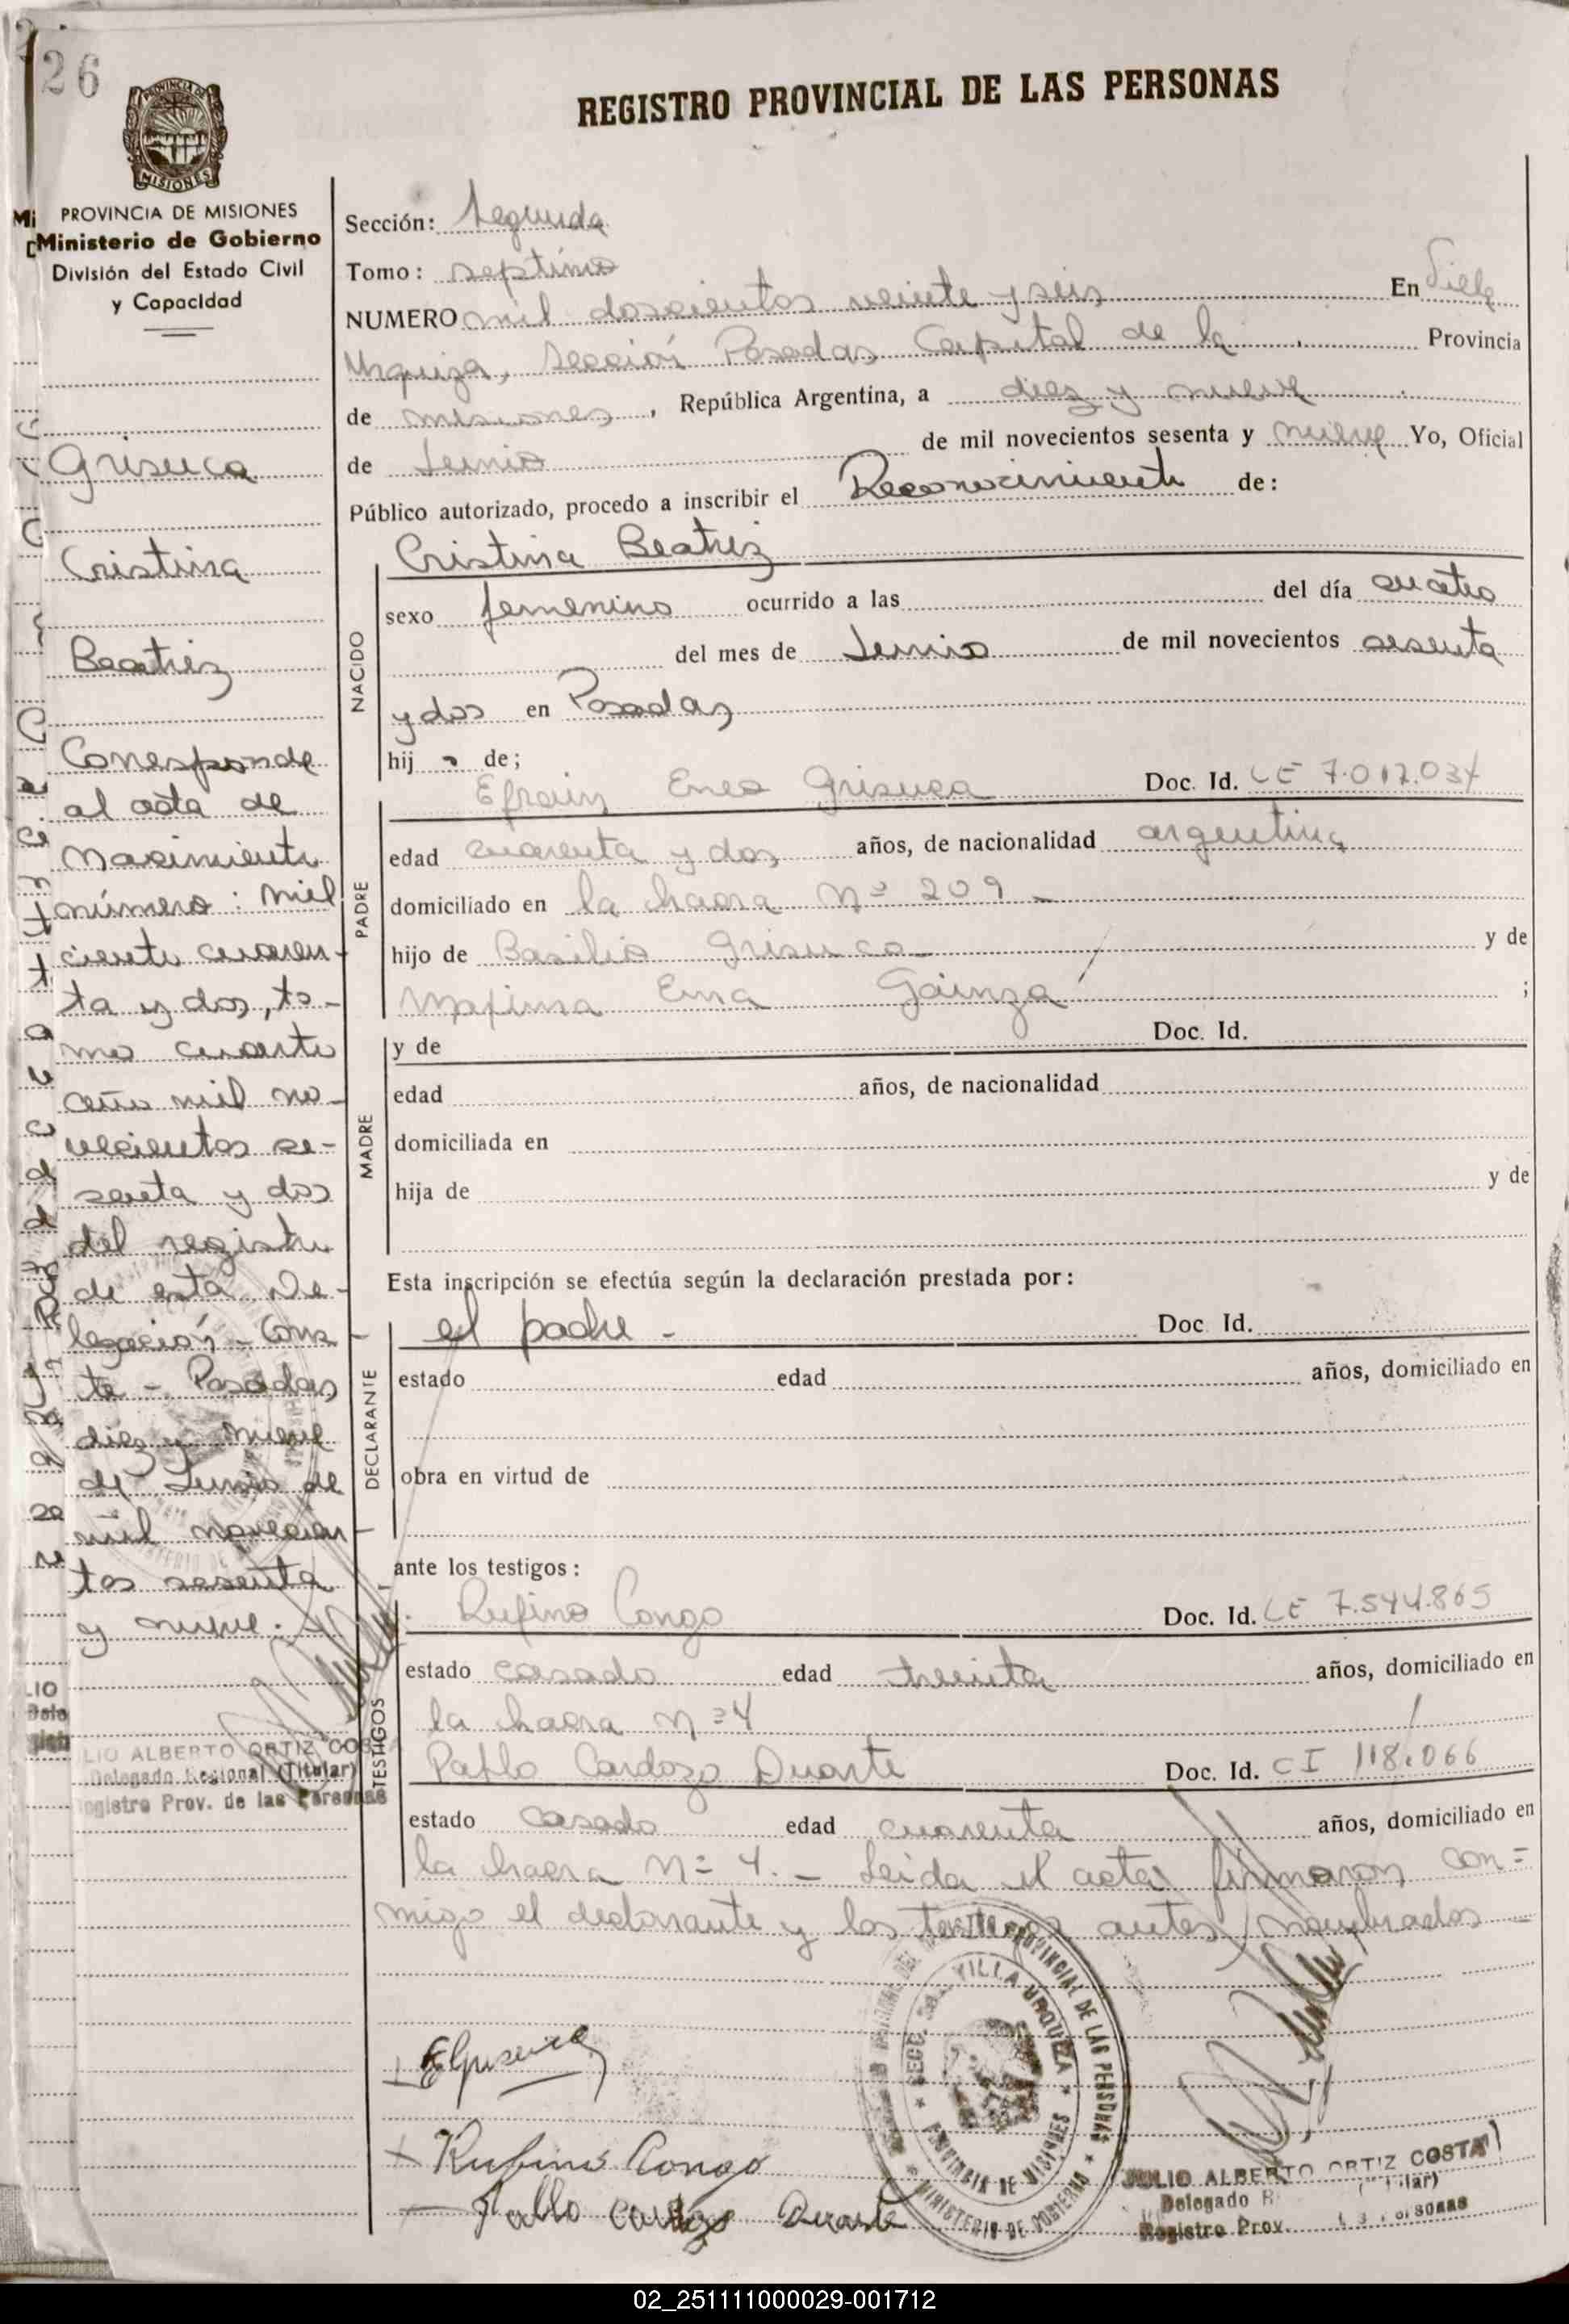 26
REGISTRO PROVINCIAL DE LAS PERSONAS
PROVINCIA DE MISIONES
Ministerio de Gobierno
División del Estado Civil
y Capacidad
Grisuca
Cristina
Beatriz
Corresponde
al acta de
Nacimiento
número: mil
ciento cuaren-
ta y dos, to-
mo cuarto
año mil no-
vecientos se-
senta y dos
del registro
de esta De-
legación - Cons-
te - Posadas,
diez y nueve
de Junio de
mil novecien-
tos sesenta
y nueve.
LIO ALBERTO ORTIZ COS
Delegado Regional (Titular)
egistro Prov. de las Personas
Sección: Segunda
Tomo: septimo
NUMERO mil doscientos veinte y seis En Villa
Urquiza, Sección Posadas, Capital de la Provincia
de Misiones, República Argentina, a diez y nueve
de Junio de mil novecientos sesenta y nueve Yo, Oficial
Público autorizado, procedo a inscribir el Reconocimiento de:
NACIDO
Cristina Beatriz
sexo femenino ocurrido a las del día cuatro
del mes de Junio de mil novecientos sesenta
y dos en Posadas
hij a de;
PADRE
Efrain Eneo Grisuca Doc. Id. LE 7.017.034
edad cuarenta y dos años, de nacionalidad argentina
domiciliado en la chacra Nº 209 -
hijo de Basilio Grisuca y de
Maxima Ema Gainza ;
MADRE
y de Doc. Id.
edad años, de nacionalidad
domiciliada en
hija de y de
Esta inscripción se efectúa según la declaración prestada por:
DECLARANTE
el padre - Doc. Id.
estado edad años, domiciliado en
obra en virtud de
ante los testigos:
TESTIGOS
Rufino Congo Doc. Id. LE 7.544.865
estado casado edad treinta años, domiciliado en
la chacra Nº 4
Pablo Cardozo Duarte Doc. Id. CI 118.066
estado casado edad cuarenta años, domiciliado en
la chacra Nº 4. - Leida el acta, firmaron con=
migo el declarante y los testigos antes nombrados -
EGrisuca
Rufino Congo
Pablo Cardozo Duarte
PROVINCIAL DE LAS PERSONAS
SECC. VILLA URQUIZA
PROVINCIA DE MISIONES
MINISTERIO DE GOBIERNO
JULIO ALBERTO ORTIZ COSTA
Delegado
Registro Prov.
02_251111000029-001712